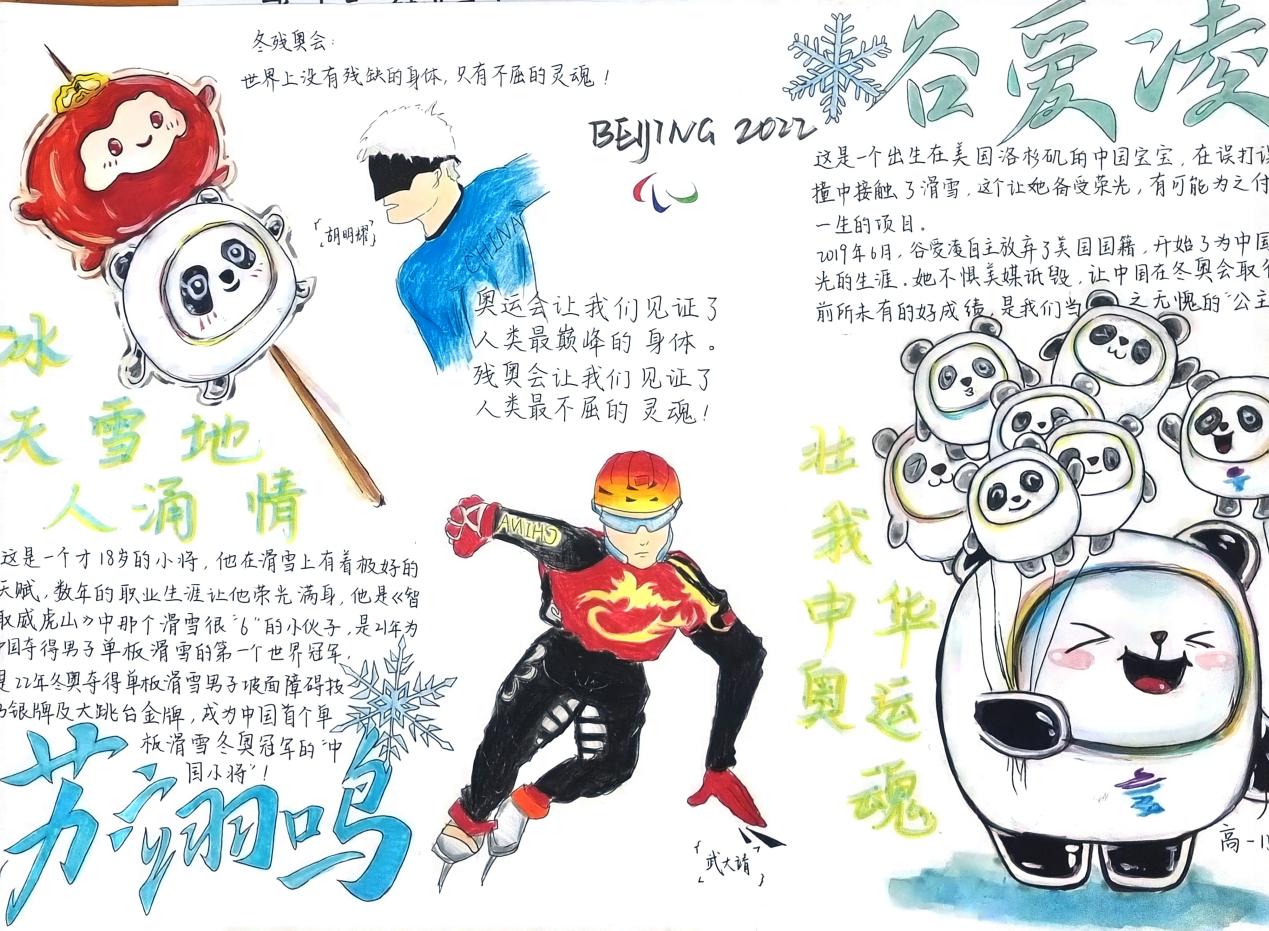 冬残奥会:
世界上没有残缺的身体,只有不屈的灵魂!
BEIJING 2022
「胡明耀」
CHINA
奥运会让我们见证了
人类最巅峰的身体。
残奥会让我们见证了
人类最不屈的灵魂!
冰
天雪地
人涌情
这是一个才18岁的小将,他在滑雪上有着极好的
天赋,数年的职业生涯让他荣光满身,他是《智
取威虎山》中那个滑雪很“6”的小伙子,是21年为
中国夺得男子单板滑雪的第一个世界冠军,
是22年冬奥夺得单板滑雪男子坡面障碍技
银牌及大跳台金牌,成为中国首个单
板滑雪冬奥冠军的“中
国小将”!
苏翊鸣
CHINA
「武大靖」
谷爱凌
这是一个出生在美国洛杉矶的中国宝宝,在误打误
撞中接触了滑雪,这个让她备受荣光,有可能为之付
一生的项目。
2019年6月,谷爱凌自主放弃了美国国籍,开始了为中国
光的生涯.她不惧美媒诋毁,让中国在冬奥会取得
前所未有的好成绩,是我们当之无愧的“公主
壮
我
中华
奥运
魂
高一